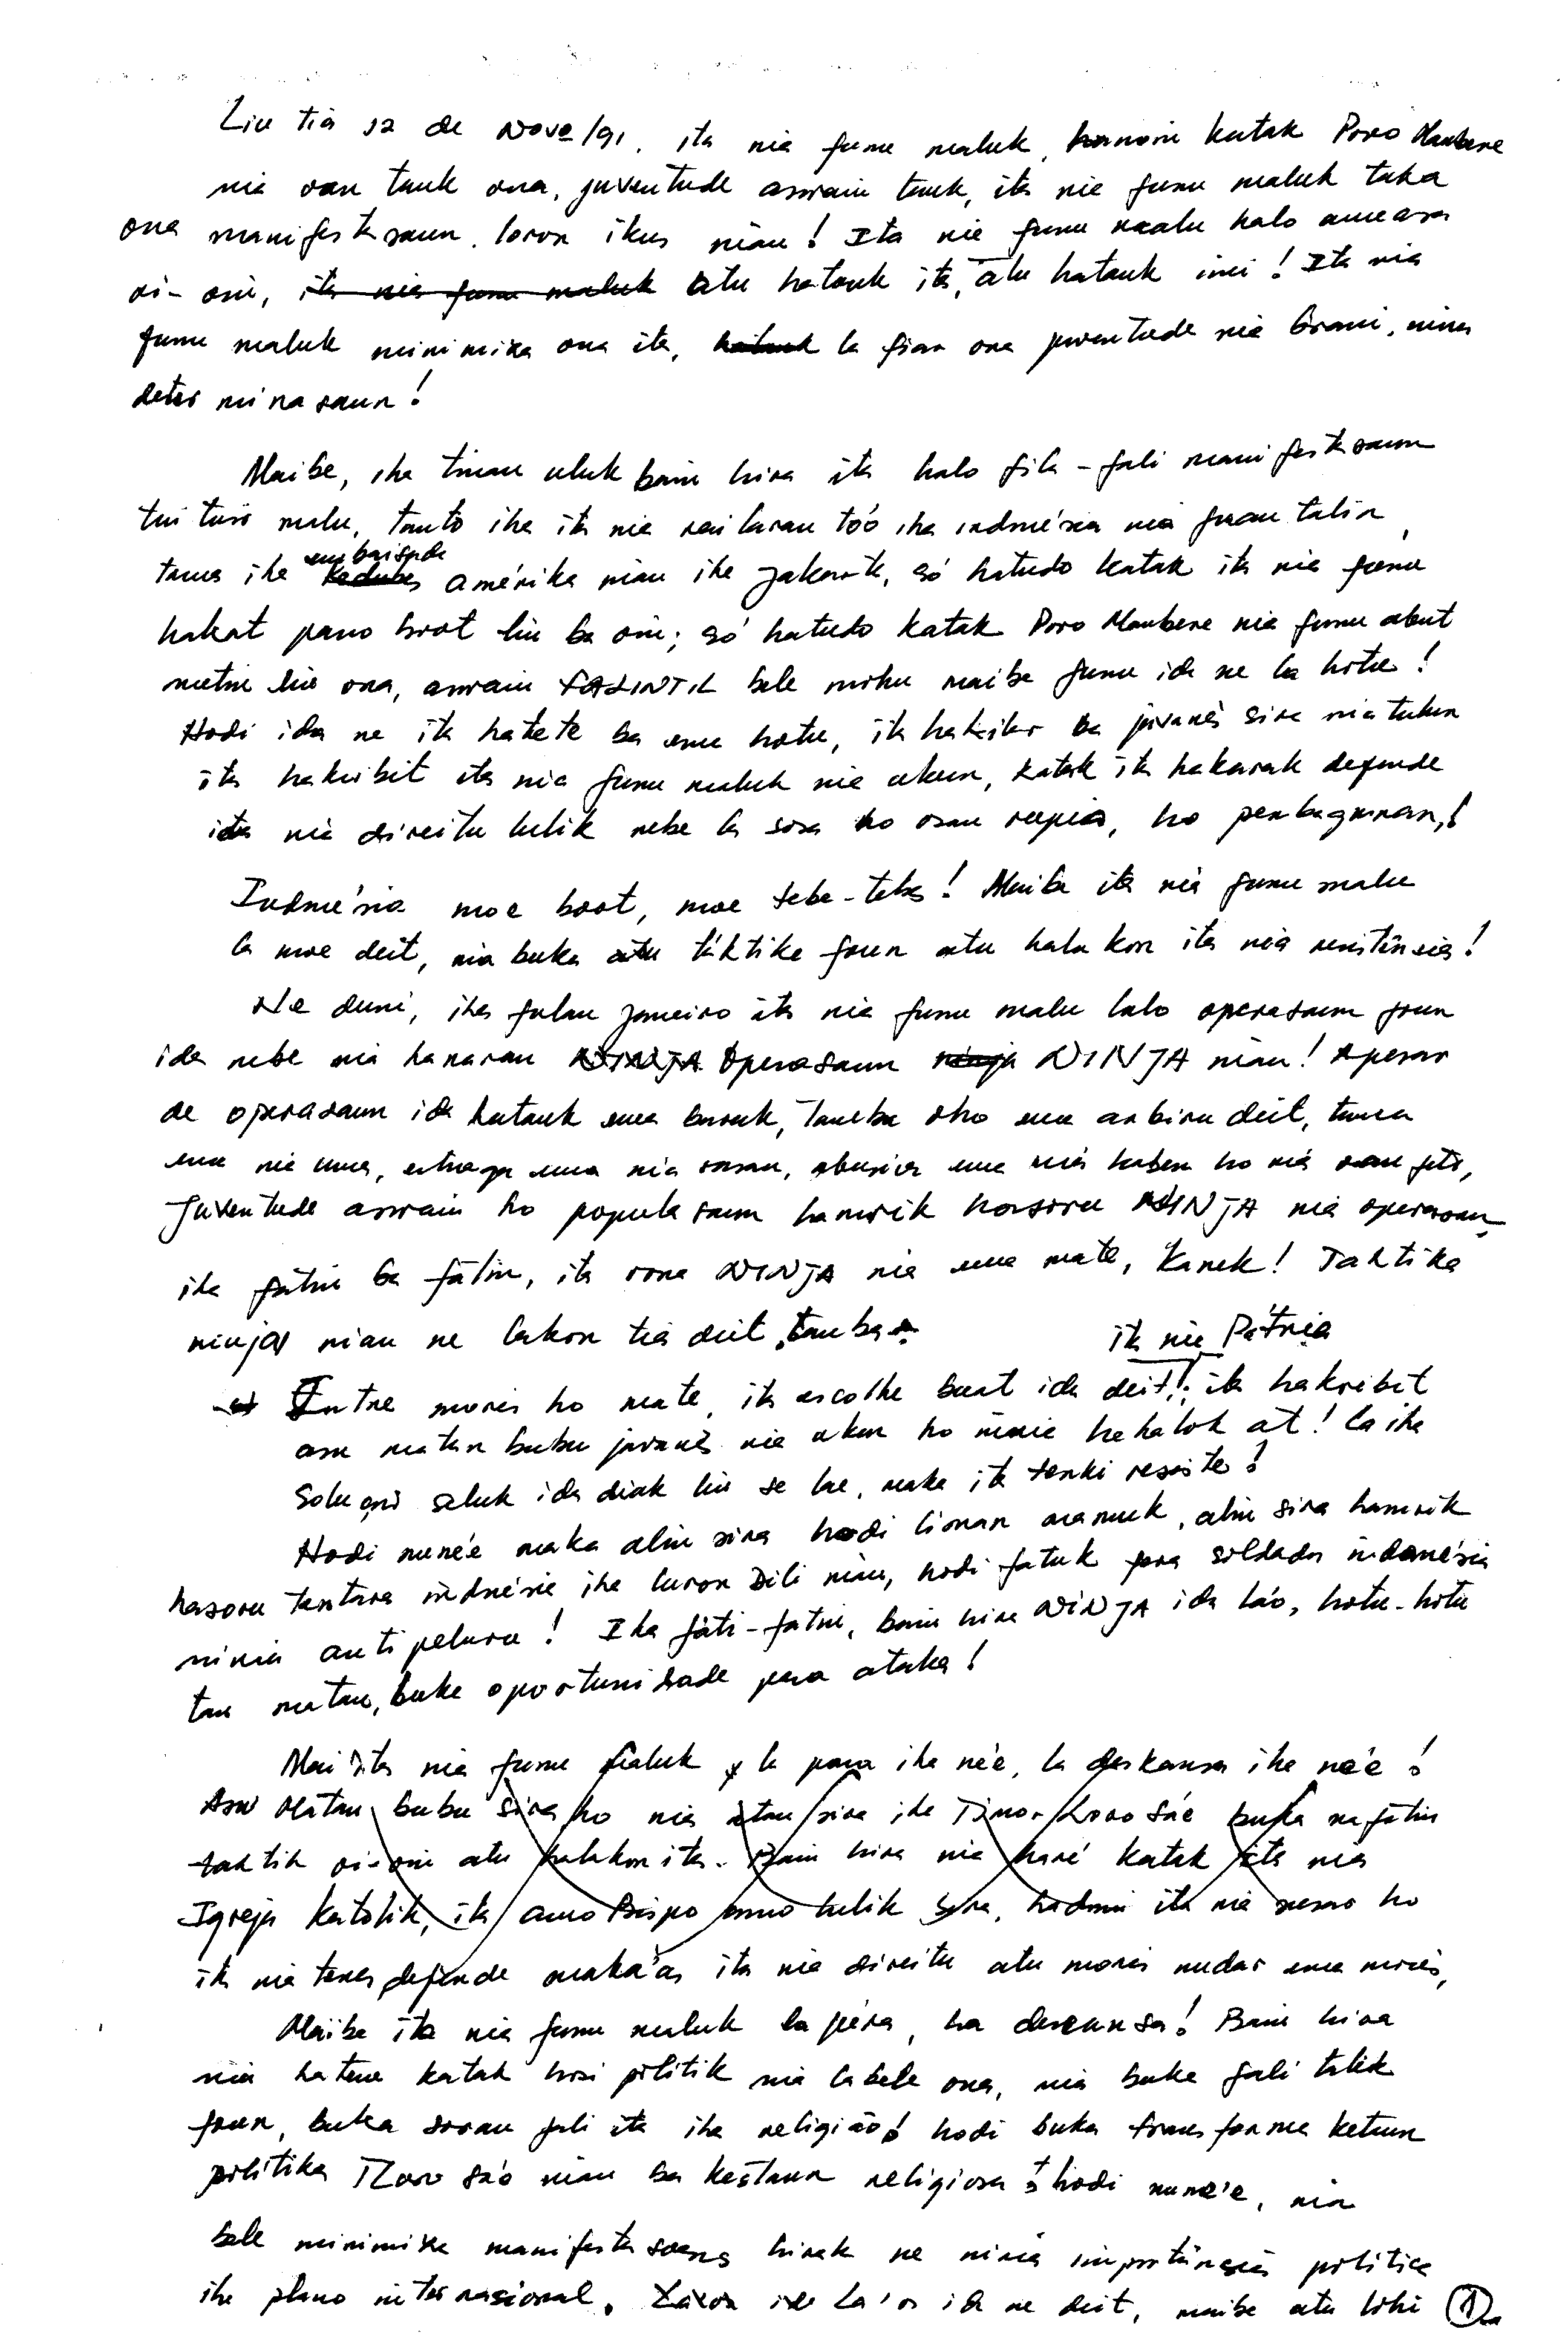 Liu tiá 12 de Novo/91, ita nia funu maluk, hanoin katak Povo Maubere
nia oan tauk ona, juventude aswain tauk, ita nia funu maluk taka
ona manifestasaun loron ikus nian! Ita nia funu maluk halo ameasa
oi-oin, ita nia funu maluk Atu hatauk ita, atu hatauk imi! Ita nia
funu maluk minimiza ona ita, hatauk la fiar ona juventude nia brani, ninia
determinasaun!
Maibe, iha tinan uluk bain hira ita halo fila-fali manifestasaun
tui tuir malu, tanto iha ita nia rai laran tó'o iha indonésia nia fuan talin
tama iha Kedubes embaixada amérika nian iha Jakarta, só hatudo katak ita nia funu
hakat passo boot liu ba oin; só hatudo katak Povo Maubere nia funu abut
metin liu ona, aswain FALINTIL bele mohu maibe funu ida ne la hotu!
Hodi ida ne ita hatete ba ema hotu, ita hakilar ba javanês sira nia tilun
ita hakribit ita nia funu maluk nia ukun, katak ita hakarak defende
ita nia direitu lulik nebe la sosa ho osan rupia, ho pembagunan!
Indonésia moe boot, moe tebe-tebes! Maibe ita nia funu malu
la moe deit, nia buka atu táktika foun atu halakon ita nia resistênsia!
Ne duni, iha fulan Janeiro ita nia funu malu halo operasaun foun
ida nebe nia hanaran NINJA Operasaun ninja NINJA nian! Apesar
de operasaun ida hatauk ema barak, tamba oho ema arbiru deit, tama
ema nia uma, estraga ema nia sasan, abusa ema nia kaben ho nia oan feto,
Juventude aswain ho populasaun hamrik hasoru NINJA nia operasaun,
iha fatin ba fatin, ita rona NINJA nia ema mate, Kanek! Taktika
ninjas nian ne lakon tiá deit, tamba
ita nia Pátria
Entre moris ho mate, ita escolhe buat ida deit!; ita hakribit
asu matan bubu javanês nia ukun ho ninia hahalok at! La iha
Solução seluk ida diak liu se lae, maka ita tenki resiste!
Hodi nune'e maka alin sira hodi liman mamuk, alin sira hamrik
hasoru tentara indonésia iha luron Dili nian, hodi fatuk fera soldados indonésia
ninia anti peluru! Iha fati-fatin, bain hira NINJA ida la'o, hotu-hotu
tau matan, buka oportunidade para ataka!
Mai ita nia funu maluk la para iha ne'e, la deskansa iha ne'e!
Asu Matan bubu sira ho nia atan sira iha Timor Loro Sa'e buka nafatin
taktik oi-oin atu halakon ita. Bain hira nia haré katak ita nia
Igreja Katólik, ita amo Bispo amo lulik sira, hadomi ita nia sesar ho
ita nia terus defende maka'as ita nia direitu atu moris nudar ema moris,
Maibe ita nia funu maluk la pára, la descansa! Bain hira
nia hatene katak hosi politik nia labele ona, nia buka fali taktik
foun, buka soran fali ita iha religião! hodi buka transforma kestaun
politika T.Loro Sa'e nian ba kestaun religiosa hodi nune'e, nia
bele minimiza manifestasoens hirak ne ninia importânsia politica
iha plano internasional. La'os ida ne deit, maibe atu lohi 1